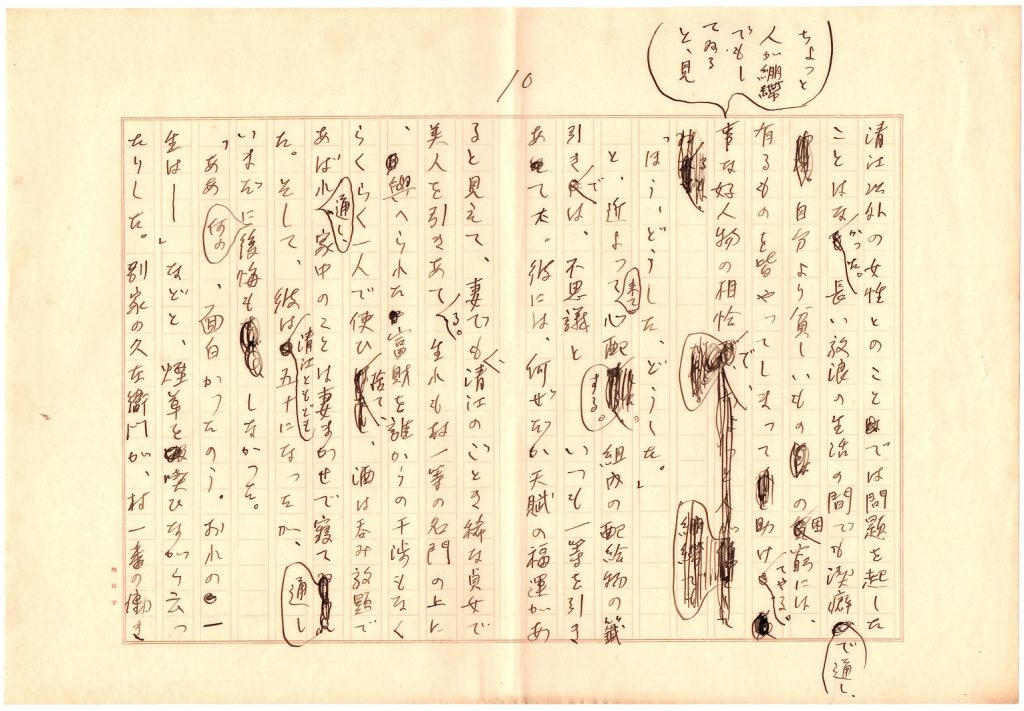 10
清江以外の女性とのことでは問題を起した
ことはなかつた。長い放浪の生活の間でも潔癖で通し、
自分より貧しいものの困窮には、
有るものを皆やつてしまつて助けてやる。
ちよつと人が繃帯でもしてゐると、見
事な好人物の相恰で、
「ほう、どうした、どうした。」
と、近よつて来て心配する。組内の配給物の籤
引きでは、不思議といつも一等を引き
あてて来た。彼には、何ぜだか天賦の福運があ
ると見えて、妻でも清江のごとき稀な貞女で
美人を引きあてる。生れも村一等の名門の上に
、与へられた富財を誰からの干渉もなく
らくらく一人で使ひ捨て、酒は呑み放題で
あばれ通し、家中のことは妻まかせで寝て通し
た。そして、彼は五十になつたが、清江ともども
いまだに後悔もしなかつた。
「ああ、何の、面白かつたのう。おれの一
生は―」などと、煙草を喫ひながら云つ
たりした。別家の久左衛門が、村一番の働き